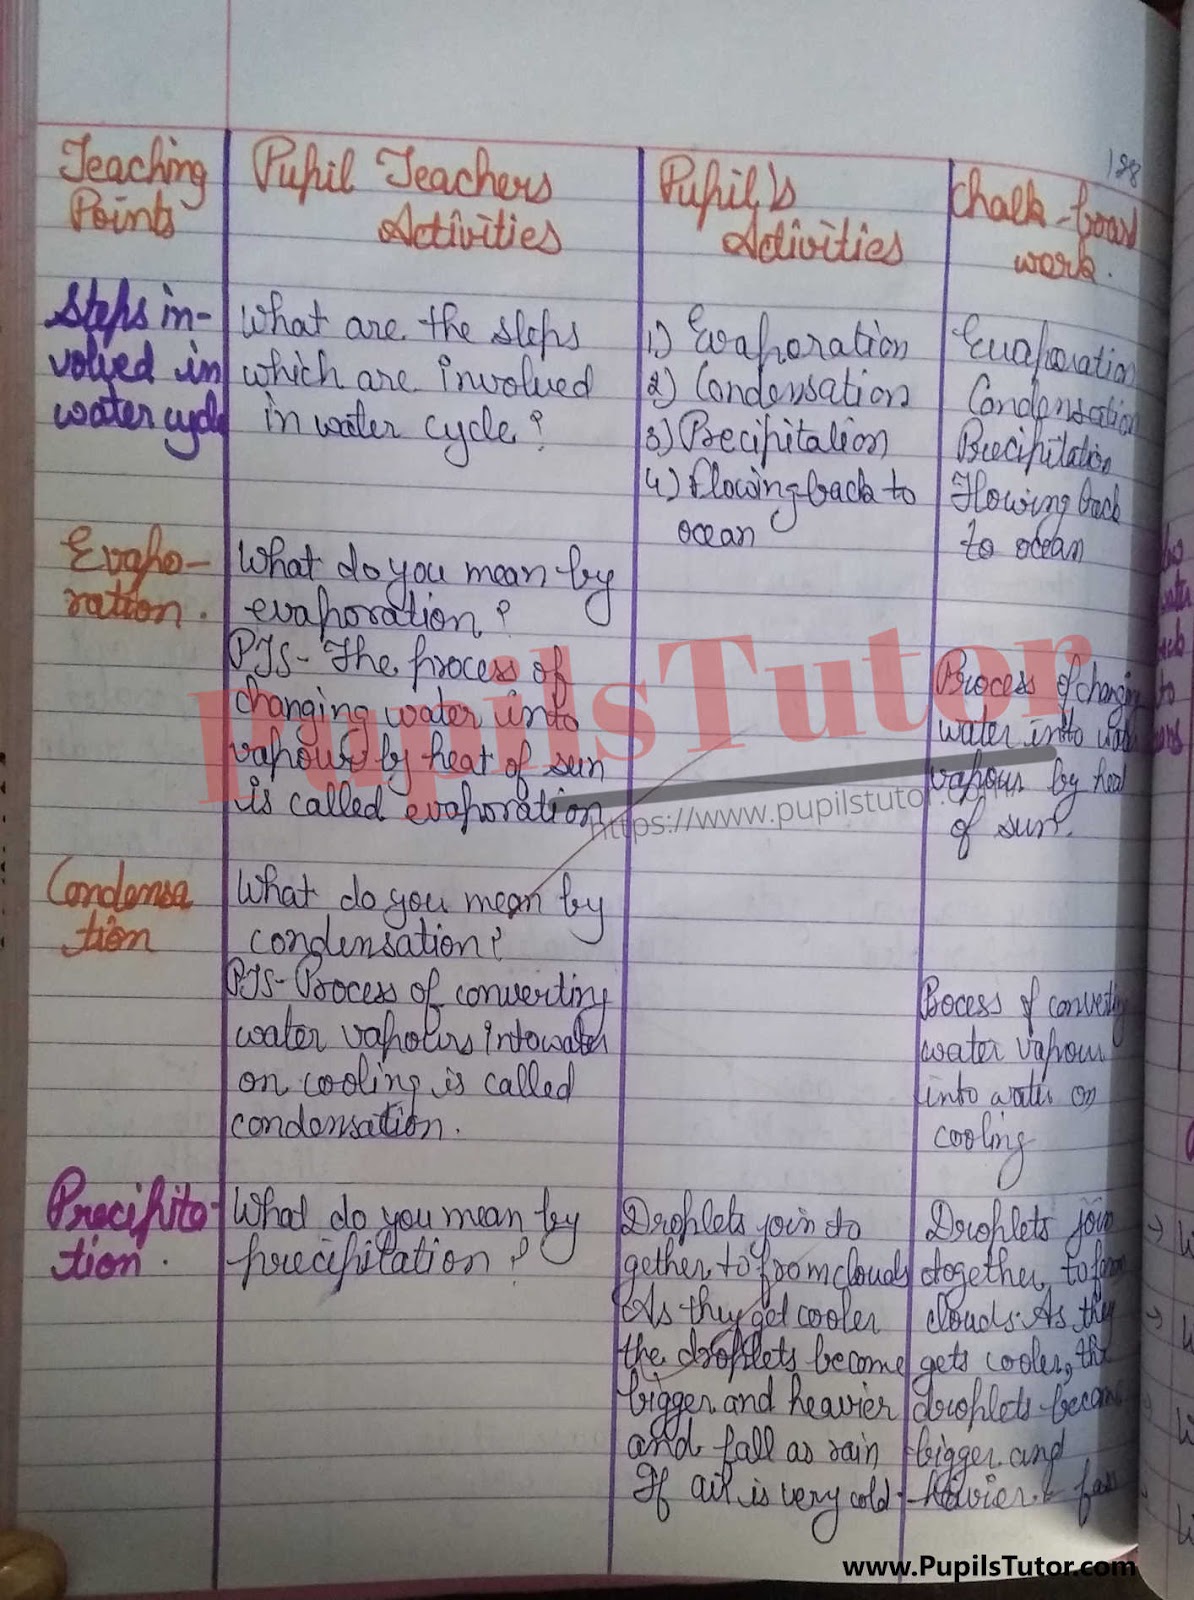 188
Teaching
Points
Pupil Teachers
Activities
Pupil's
Activities
Chalk-board
work.
Steps in-
volved in
water cycle
What are the steps
which are involved
in water cycle?
1) Evaporation
2) Condensation
3) Precipitation
4) Flowing back to
ocean
Evaporation
Condensation
Precipitation
Flowing back
to ocean
Evapo-
ration.
What do you mean by
evaporation?
PTS- The process of
changing water into
vapours by heat of sun
is called evaporation
Process of changing
water into water
vapour by heat
of sun.
Condensa
tion
What do you mean by
condensation?
PTS- Process of converting
water vapours into water
on cooling is called
condensation.
Process of converting
water vapour
into water on
cooling
Precipita-
tion.
What do you mean by
precipitation?
Droplets join to
gether to from clouds
As they get cooler
the droplets become
bigger and heavier
and fall as rain
If air is very cold-
Droplets join
together to form
clouds. As they
gets cooler, the
droplets become
bigger and
hevier &
PupilsTutor
https://www.pupilstutor.com
www.PupilsTutor.com